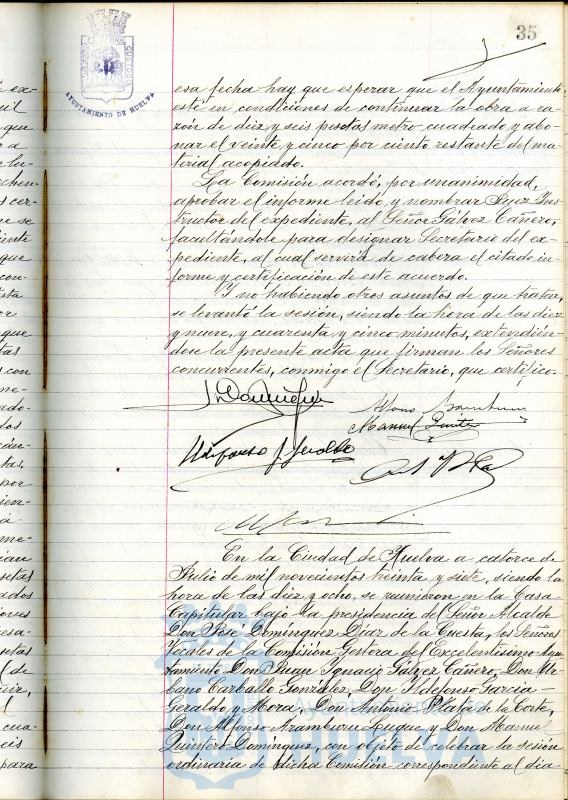 35
AYUNTAMIENTO DE HUELVA
esa fecha hay que esperar que el Ayuntamiento
esté en condiciones de continuar la obra a ra-
zón de diez y seis pesetas metro cuadrado y abo-
nar el veinte y cinco por ciento restante del ma-
terial acopiado.
La Comisión acordó, por unanimidad,
aprobar el informe leido, y nombrar Juez Ins-
tructor del expediente, al Señor Gálvez Cañero,
facultándole para designar Secretario del ex-
pediente, al cual servirá de cabeza el citado in-
forme y certificación de este acuerdo.
Y no habiendo otros asuntos de que tratar,
se levantó la sesión, siendo la hora de las diez
y nueve, y cuarenta y cinco minutos, extendién-
dose la presente acta que firman los Señores
concurrentes, conmigo el Secretario, que certifico.
Alfonso Aramburu
Manuel Quintero
Ildefonso G. Geraldo
En la Ciudad de Huelva a catorce de
Julio de mil novecientos treinta y siete, siendo la
hora de las diez y ocho, se reunieron en la Casa
Capitular bajo la presidencia del Señor Alcalde
Don José Domínguez Díaz de la Cuesta, los Señores
Vocales de la Comisión Gestora del Excelentísimo Ayun-
tamiento Don Juan Ignacio Gálvez Cañero, Don Ur-
bano Carballo González, Don Ildefonso García-
Geraldo y Mora, Don Antonio Plata de la Corte,
Don Alfonso Aramburu Luque y Don Manuel
Quintero Domínguez, con objeto de celebrar la sesión
ordinaria de dicha Comisión correspondiente al dia